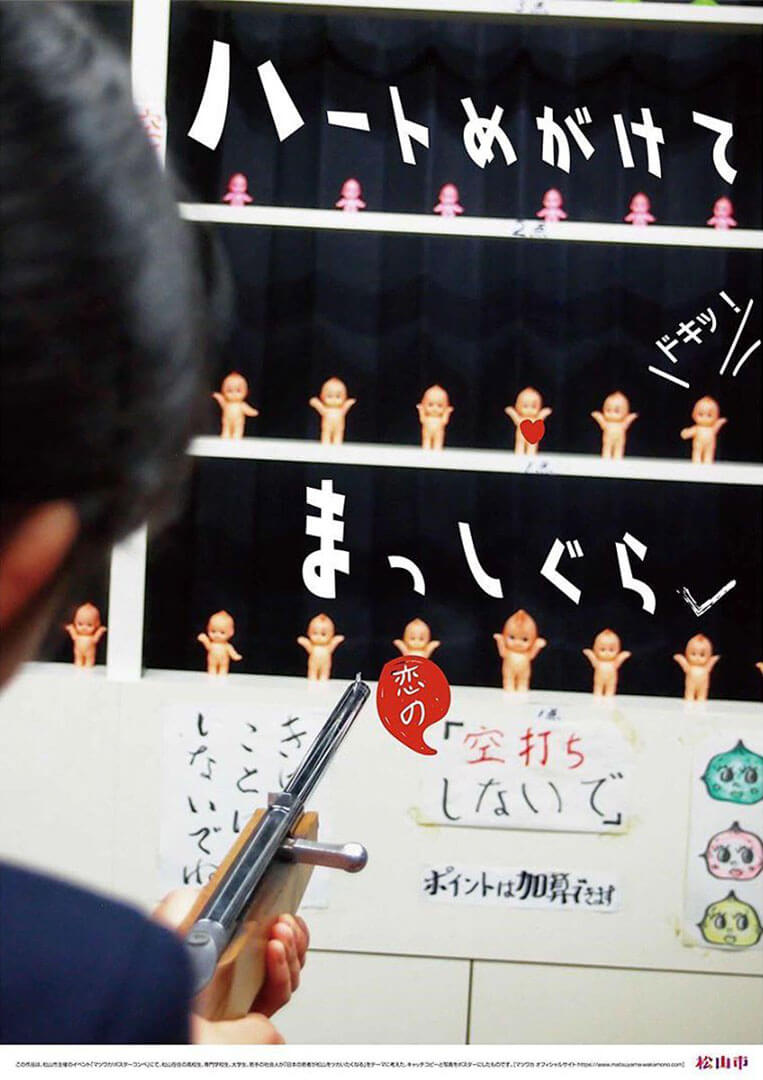 ハートめがけて
2点
ドキッ！
1点
まっしぐら
恋の
1点
「空打ち
しないで」
ポイントは加算できます
しないでね
この作品は、松山市主催のイベント「マツワカポスターコンペ」にて、松山在住の高校生、専門学校生、大学生、若手の社会人が「日本の若者が松山をツカいたくなる」をテーマに考えた、キャッチコピーと写真をポスターにしたものです。［マツワカ オフィシャルサイト https://www.matsuyama-wakamono.com］
松山市